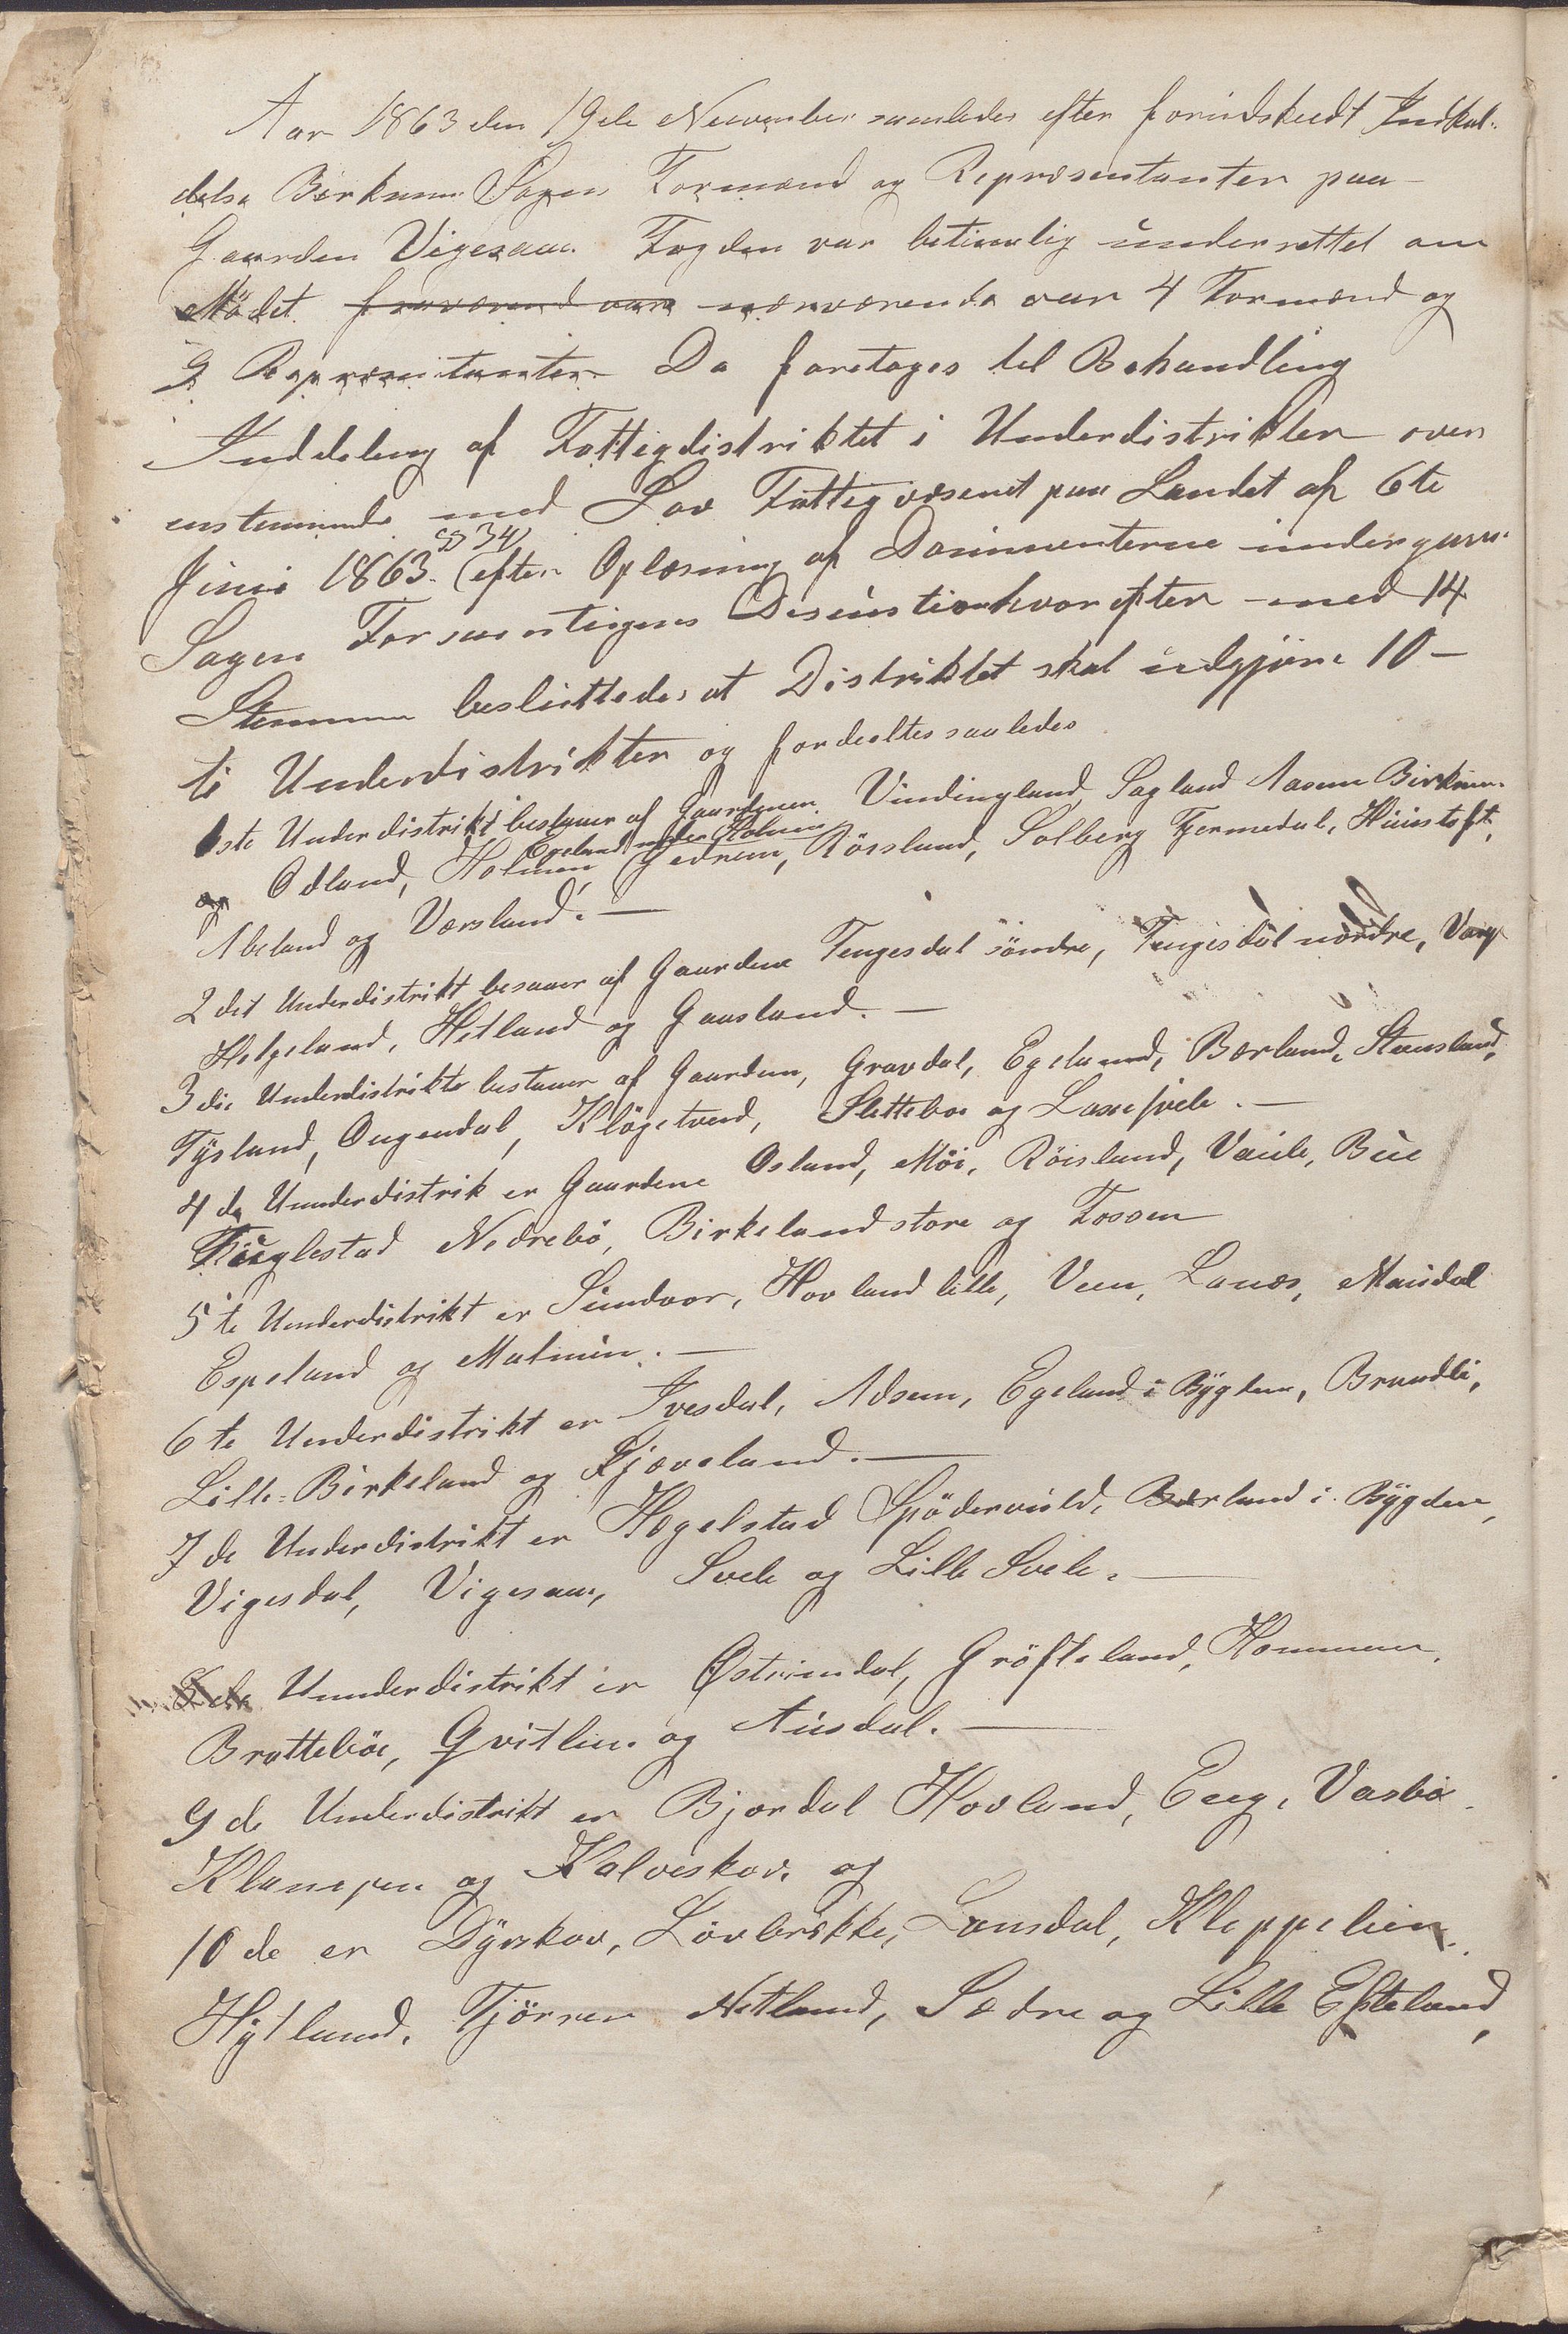 Aar 1863 den 19de November samledes efter forindskudt Indkal-
delse Birkrem Sogns Formænd og Repræsentanter paa
Gaarden Vigesaa. Fogden var betimelig underrettet om
Mödet. fraværend vare nærværende var 4 Formænd og
9 Repræsentanter Da foretoges til Behandling
Inddeling af Fattigdistriktet i Underdistrikter over
enstemmende med Lov Fattigvæsenet paa Landet af 6te
Juni 1863. § 34) (efter Oplæsning af Documenterne undergaves
Sagen Formentligens Discustion hvorefter med 14
Stemmer besluttedes at Distriktet skal udgjöre 10 –
ti Underdistrikter og fordeeltes saaledes
1ste Underdistrikt bestaaer af Gaardenen Vindingland, Sagland Aasene Birkrem
Egeland under Holmen
og Odland, Holmen, Gedrem, Röisland, Solberg Fjermedal, Huustoft,
Abeland ogVærsland. –
2det Underdistrikt besaaer af Gaardene Tengesdal söndre, Tengesdal nordre, Varp
Helgeland, Hetland og Gaasland. –
3die Underdistrikte bestaaer af Gaarden, Gravdal, Egelannd, Bærland, Stensland,
Tÿsland, Ougendal, Klögetvad, Slettebö og Lassesvele. –
4de Uunderdistrik er Gaardene Osland, Möi, Röisland, Vaule, Bue
Fuglestad Nedrebö, Birkeland store og Fossen
5te Underdistrikt er Sundvor, Hovland lille, Veen, Lanæs, Maudal
Espeland og Malmin. –
6te Underdistrikt er Ivesdal, Adsem, Egeland i Bÿgden, Brandli,
Lille-Birkeland og Gjæveland. –
7de Underdistrikt er Hegelstad Spödervuld, Bærland i Bÿgden,
Vigesdal, Vigesaa, Svele og Lille Svele. –
8de Uunderdistrikt er Østrimdal, Gröfteland, Hommen.
Brattebö, Qvitlen og Ausdal. –
9de Underdistrikt er Bjordal Hovland, Eeg, Vasbö
Klungen og Kalveskov. og
10de er Dÿrskov, Lövbrække, Lonsdal, Kleppelien.
Hÿtland. Tjörren Netland, Sædre og Lille Efteland,